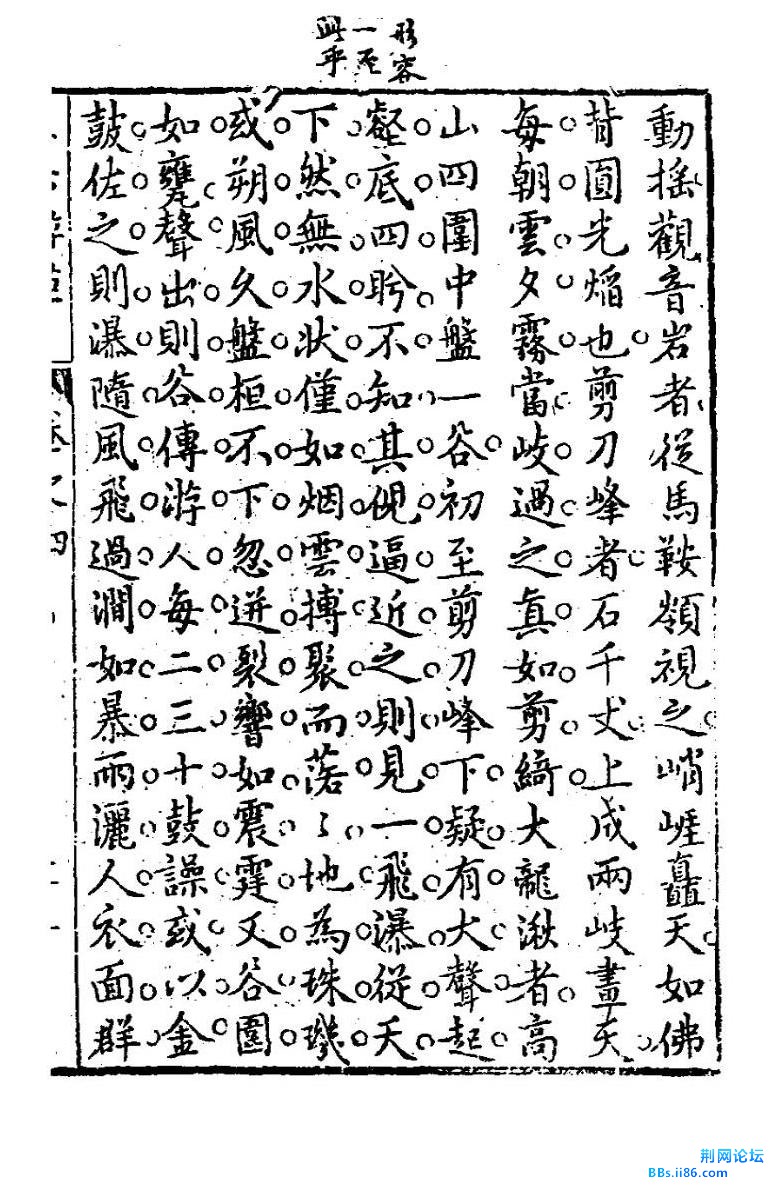 形容
一至
此乎
動搖觀音岩者從馬鞍嶺視之峭崕矗天如佛
背圓光焰也剪刀峰者石千丈上成兩岐畫天
每朝雲夕霧當岐過之真如剪綺大龍湫者高
山四圍中盤一谷初至剪刀峰下疑有大聲起
壑底四眄不知其倪逼近之則見一飛瀑從天
下然無水狀僅如烟雲搏聚而落々地為珠璣
或朔風久盤桓不下忽迸裂響如震霆又谷圓
如甕聲出則谷傳游人每二三十鼓譟或以金
鼓佐之則瀑隨風飛過澗如暴雨灑人衣面群
荆网论坛
BBs.ii86.com